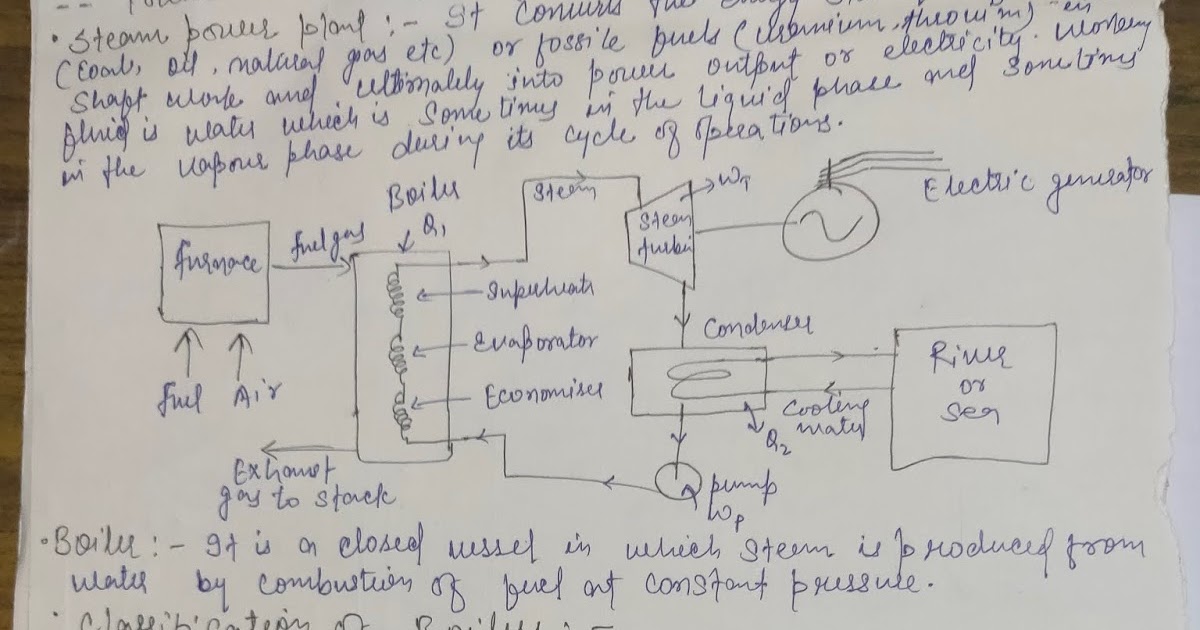 • Steam power plant :- It converts the energy
(Coal, oil, natural gas etc) or fossile fuels (uranium, thorium) in
Shaft work and ultimately into power output or electricity. working
fluid is water which is Sometimes in the liquid phase and Sometimes
in the vapour phase during its cycle of operations.
Boiler
Q1
Steam
WT
Steam
turbin
Electric generator
furnace
fuel gas
Superheater
Evaporator
Economiser
Fuel
Air
Condenser
River
or
Sea
Cooling
water
Q2
Exhaust
gas to stack
pump
Wp
• Boiler :- It is a closed vessel in which steam is produced from
water by combustion of fuel at constant pressure.
• Classification of Boilers :-